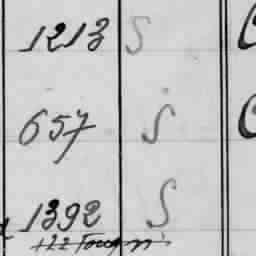 1213 S
657 S
1392 S